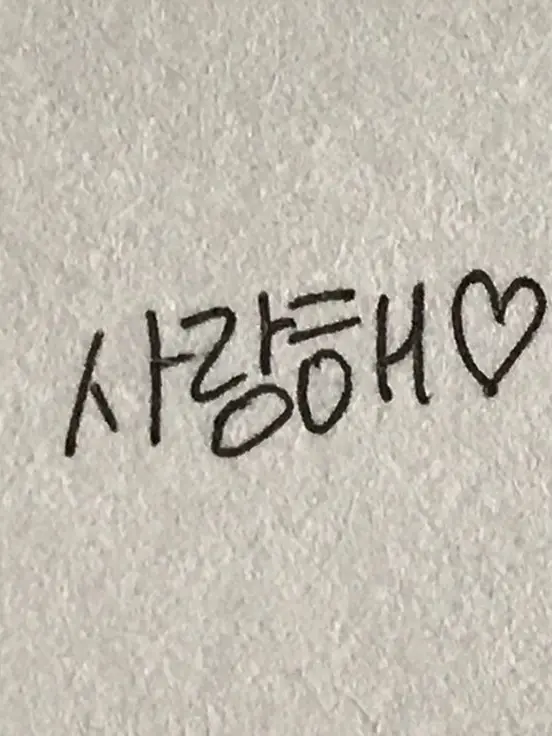 사랑해♡